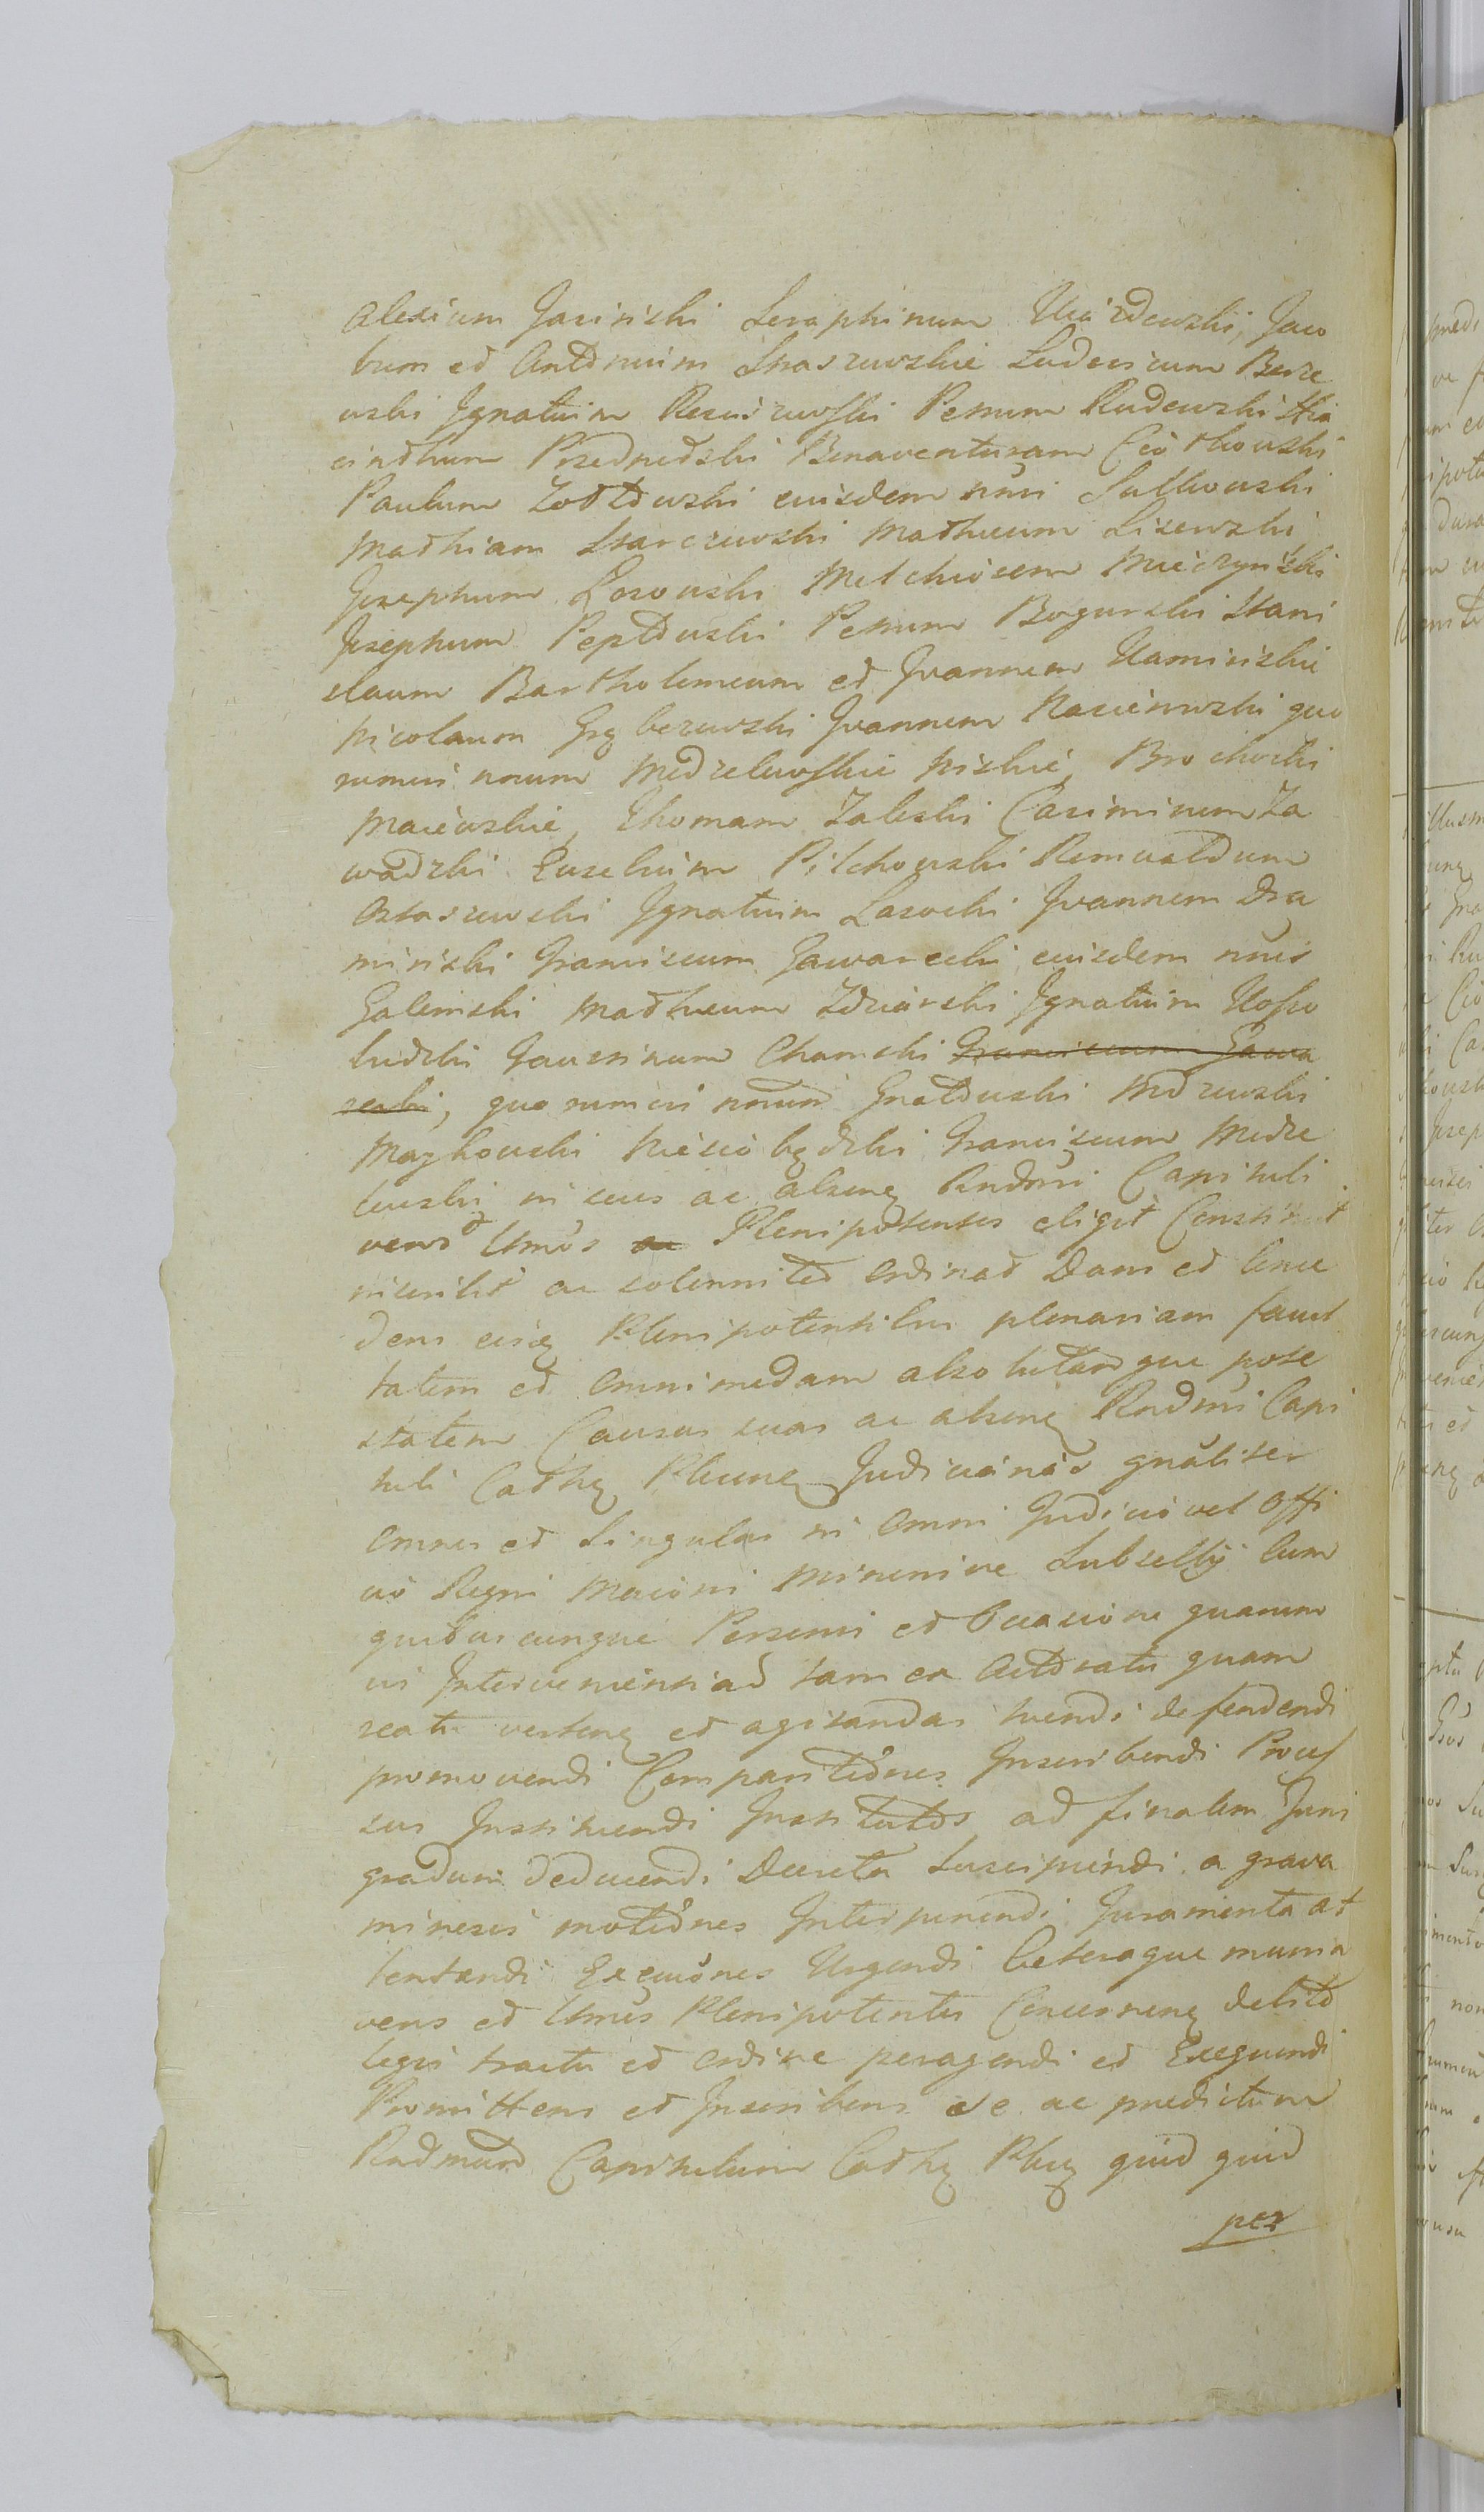 Alexium Jasinski Seraphinum Uiazdowski, Jaco
bum et Antonium Staszewskie Ludovicum Beze
wski Ignatium Rzeszewski Petrum Rudowski Hia
cinthum Przedpedzki Bonaventuram Ciothowski
Paulum Zołtowski eiusdem nnis Sulkowski
Mathiam Starczewski Matheum Lisewski
Josephum Lasowski Melchiorem Mieczynski
Josephum Peptowski Petrum Bogurski Stani
slaum Bartholomeum et Joannem Kaminskie
Nicolaum Grębczewski Joannem Kaciewski quo
rumvis nnum Modzelewskie Niskie, Brochocki
Maiewskie, Thomam Zaleski Casimirum Za
wadzki Eusebium Pilchowski Romualdum
Ostaszewski Ignatium Lasocki Joannem Dra
minski Franciscum Gawarecki eiusdem nnis
Galemski Matheum Zdziarski Ignatium Kosso
budzki Faustinum Chamski Franciscum Gawa
recki, quorumvis nnum Gnatowski Mdzewski
Maykowski Niesciobędzki Franciscum Modze
lewski, in suis ac absenq Rndmi Capituli
veros Lmos ac Plenipotentes eligit Constituit
inscribit ac solenniter Ordinat Dans et Conce
dens eisq Plenipotentibus plenariam facul
tatem et omnimodam absolutamque pote
statem Causas suas ac absenq Rndmi Capi
tuli Cathq Plucenq Judiciarias gnaliter
Omnes et Singulas in Omni Judicio vel Offi
cio Regni Maioris Minorisve Subsellij Cum
quibuscunque Personis et Occasione quarum
vis Intervenientiad tam ex Actoratu quam
reatu vertenq et agitandas tuendi defendendi
promovendi Comparitiones Inscribendi Proces
sus Instituendi Institutos ad finalem Juris
gradum deducendi Decreta Suscipiendi a grava
minosis motiones Interponendi Juramenta at
tentandi Exeuones Urgendi Ceteraque munia
veros et Lmos Plenipotentes Concernenq debito
legis tractu et Ordine peragendi et Exequendi
Promittens et Inscribens se ac predictum
Rndmum Capitulum Cathq Plucq quid quid
per